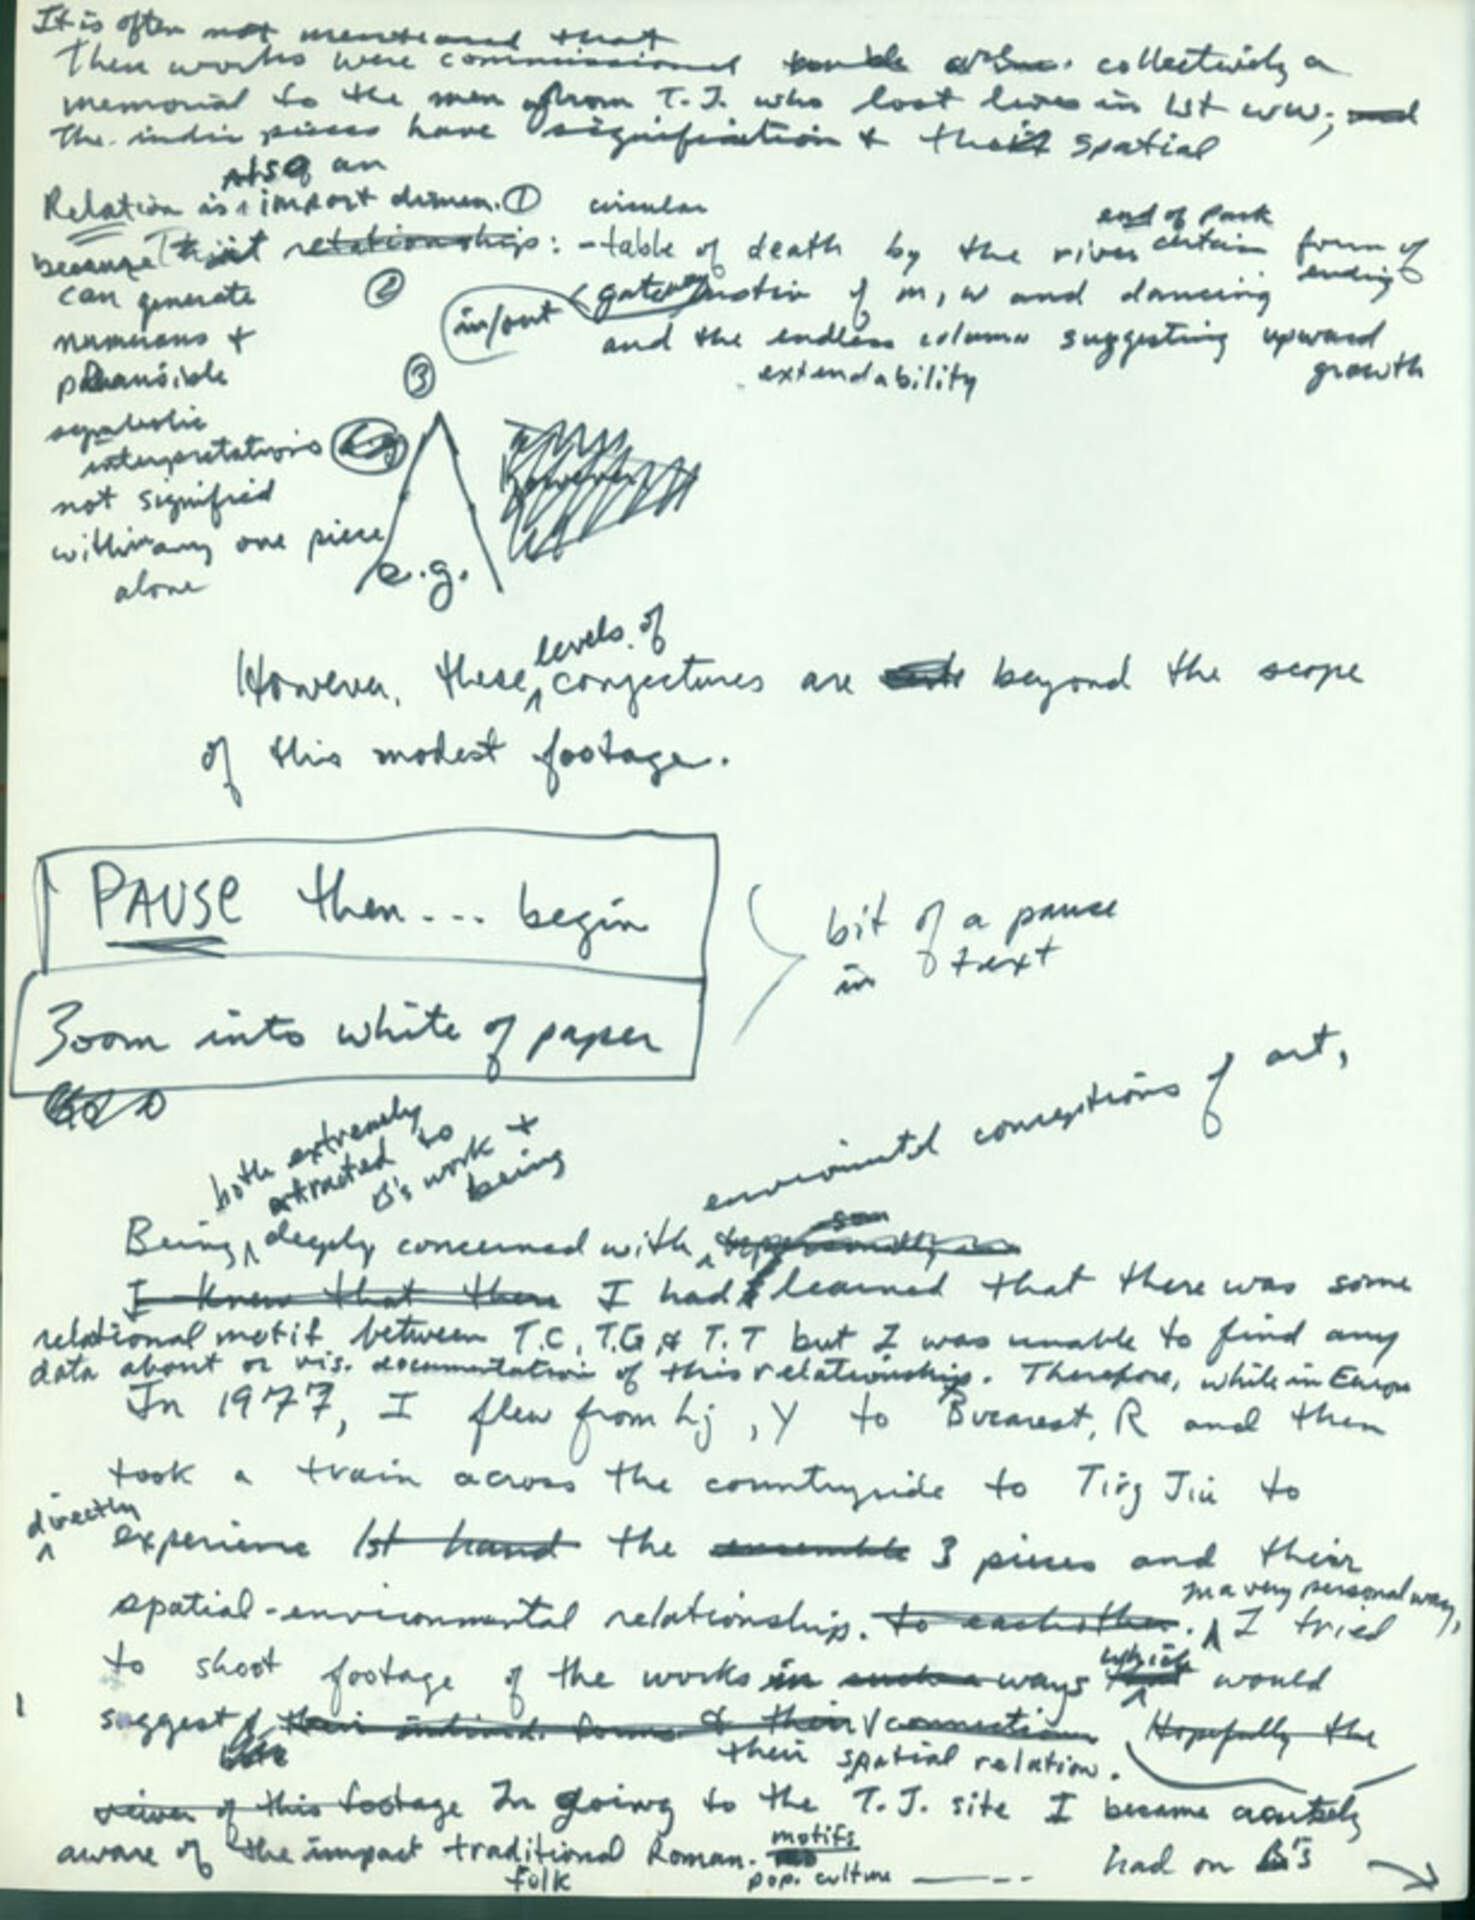 It is often not mentioned that
These works were commissioned collectively a
memorial to the men from T.J. who lost lives in 1st WW; and
The indiv pieces have signification & their spatial
also an
Relation is import dimen. ① circular
end of park
because relationships: - table of death by the river certain form of
ending
can generate ② in/out gateway motiv of m, w and dancing
numerous + and the endless column suggesting upward
plausible ③ extendability growth
symbolic
interpretations e.g. However
not signified
within any one piece
alone e.g.
levels of
However, these conjectures are beyond the scope
of this modest footage.
PAUSE then... begin
bit of a pause
in text
Zoom into white of paper
both extremely
attracted to
B's work +
being
envirimental conceptions of art,
Being deeply concerned with
I knew that there I had learned that there was some
relational motif between T.C, T.G, & T.T but I was unable to find any
data about or vis. documentation of this relationship. Therefore, while in Europe
In 1977, I flew from Lj, Y to Bucarest, R and then
took a train across the countryside to Tirg Jiu to
directly
experience 1st hand the ensemble 3 pieces and their
in a very personal way,
spatial-environmental relationship. to each other. I tried
which
to shoot footage of the works in such a ways that would
suggest their individ. forms & their connection Hopefully the
their spatial relation.
viewer of this footage In going to the T.J. site I became acutely
motifs
aware of the impact traditional Roman. had on B's
folk pop. culture